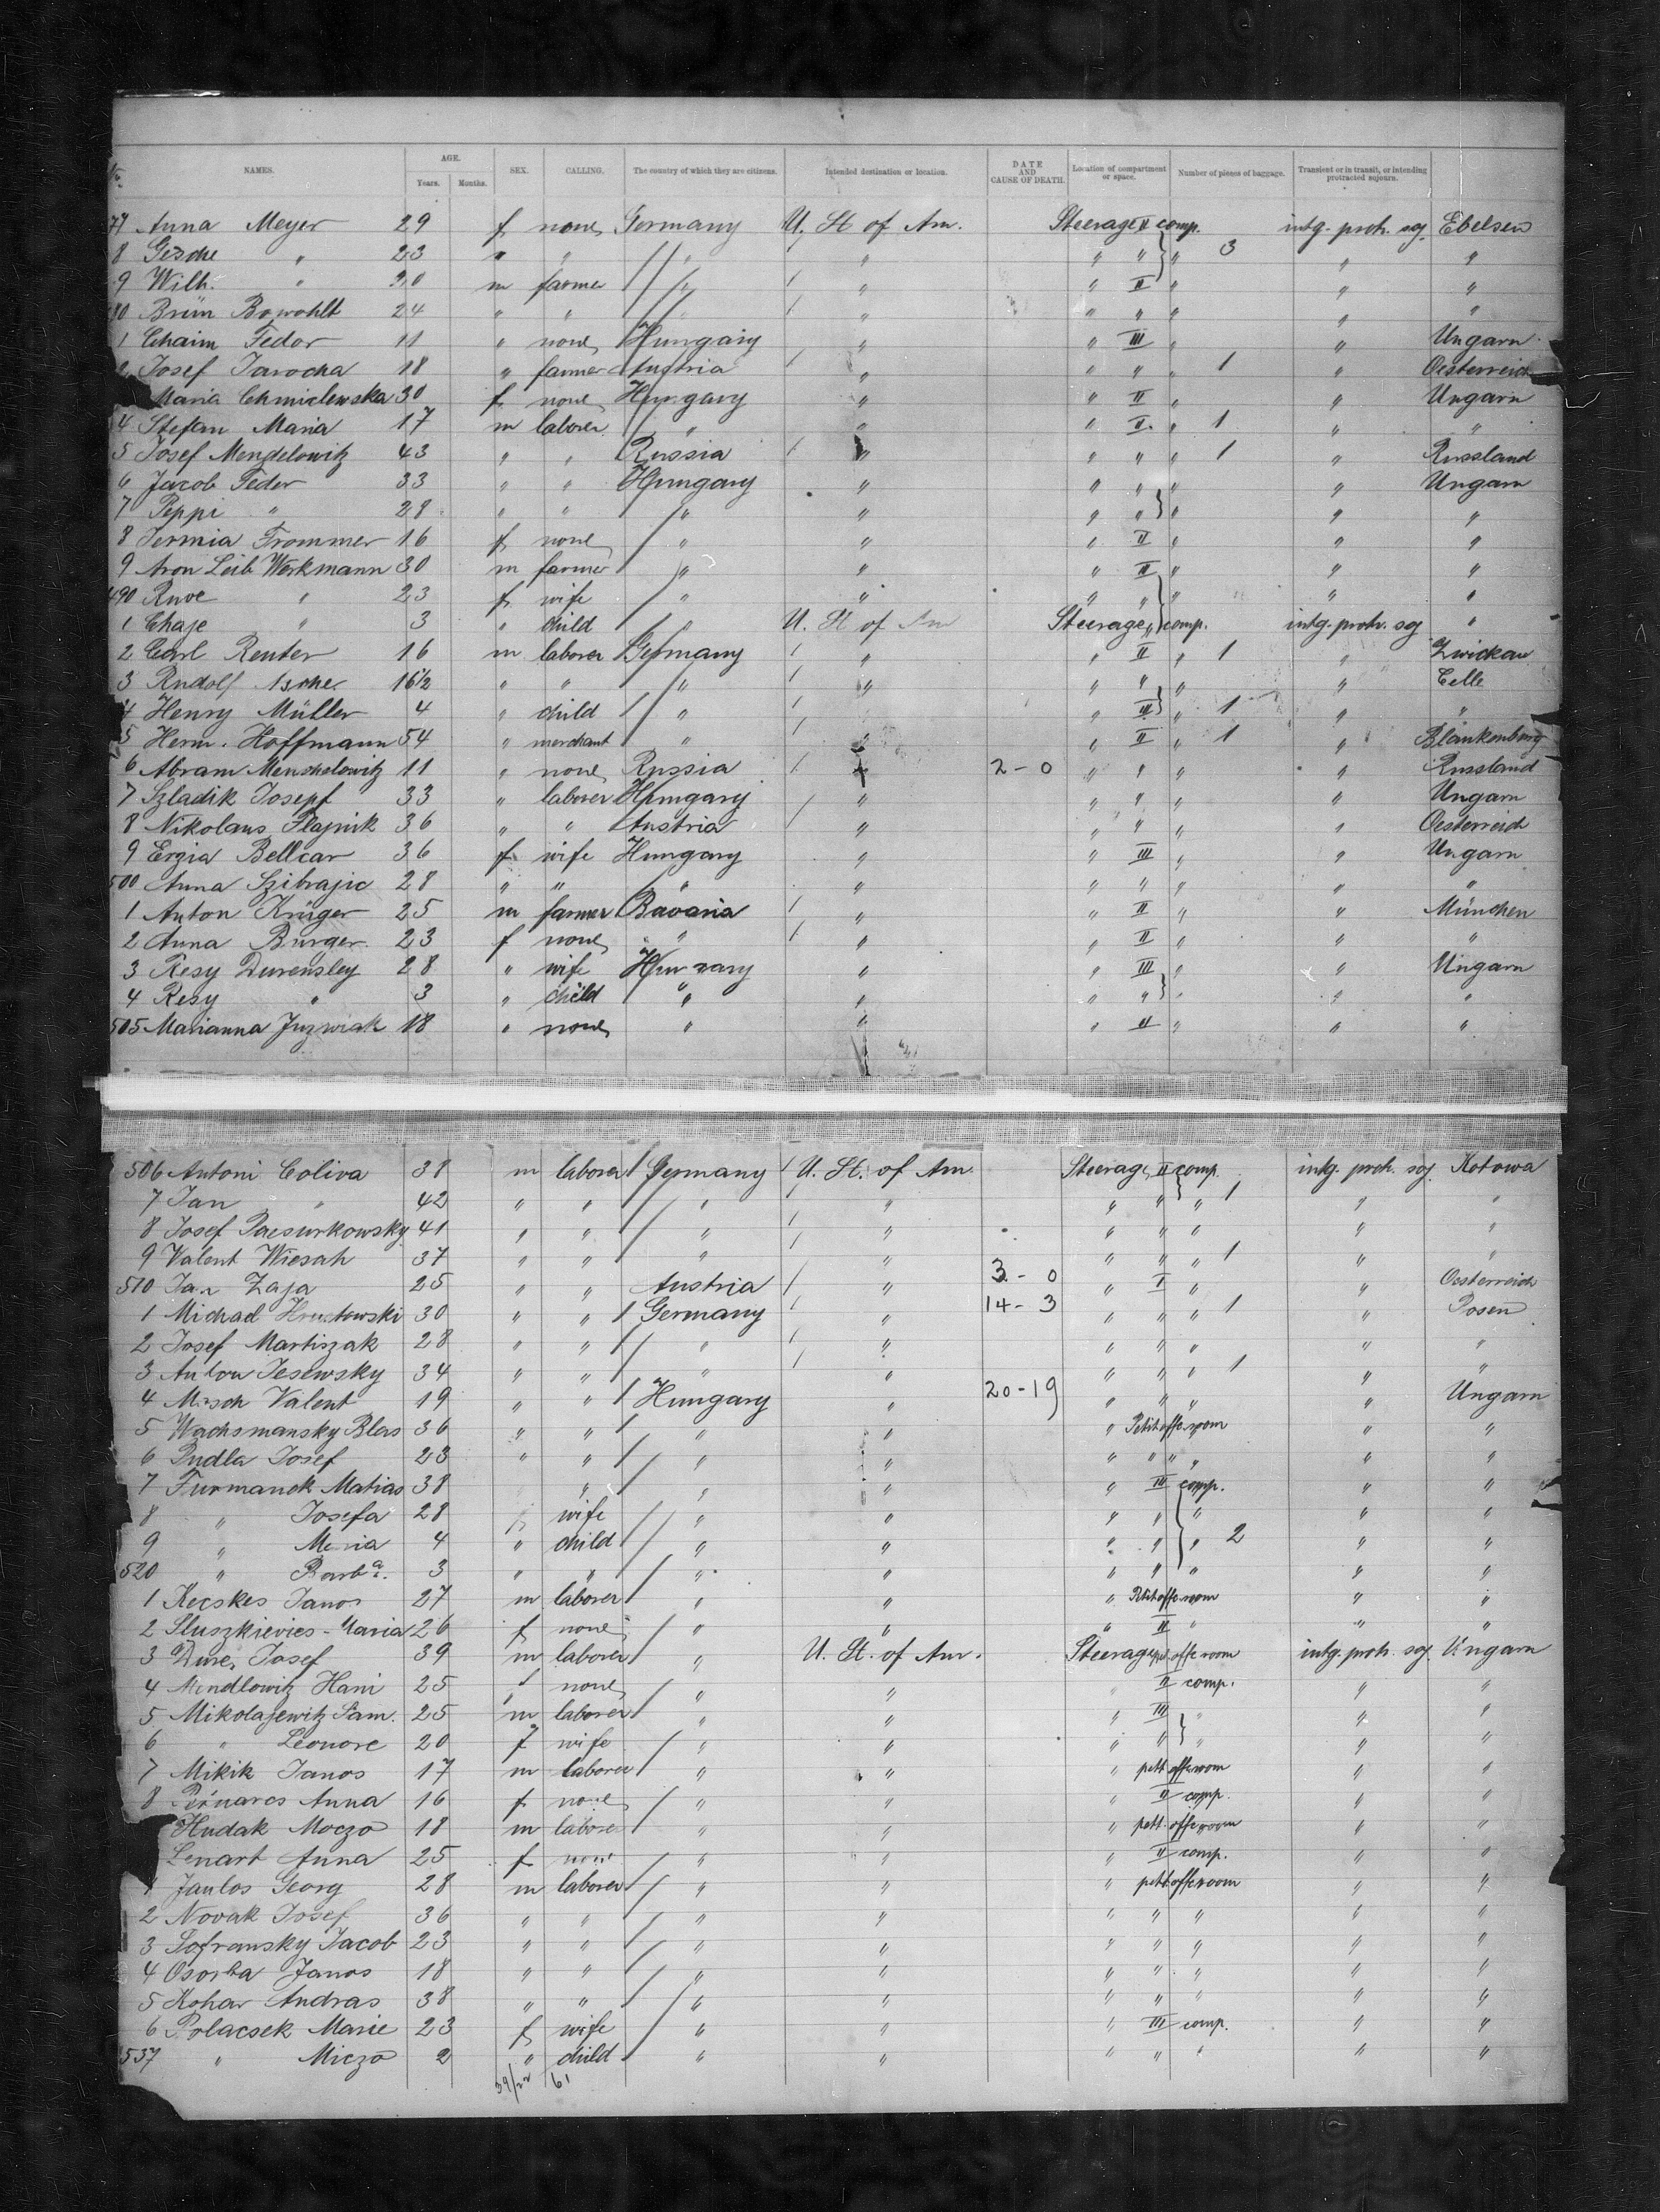 No. NAMES. AGE. Years. Months. SEX. CALLING. The country of which they are citizens. Intended destination or location. DATE AND CAUSE OF DEATH. Location of compartment or space. Number of pieces of baggage. Transient or in transit, or intending protracted sojourn.
77 Anna Meyer 29 f none Germany U. St of Am. Steerage II comp. intg. protr. soj. Ebelsen
8 Gesche " 23 " " " " " " " 3 " "
9 Wilh. " 20 m farmer " " " II " " "
80 Brün Bowohlt 24 " " " " " " " " "
1 Chaim Fedor 11 " none Hungary " " III " " Ungarn
2 Josef Jarocha 18 " farmer Austria " " " " 1 " Oesterreich
Maria Chmielewska 30 f none Hungary " " II " " Ungarn
4 Stefan Maria 17 m laborer " " " II " 1 " "
5 Josef Mendelowitz 43 " " Russia " " " " 1 " Russland
6 Jacob Feder 33 " " Hungary " " " " " Ungarn
7 Peppi " 28 " " " " " " " " "
8 Jermia Frommer 16 f none " " " II " " "
9 Aron Leib Werkmann 30 m farmer " " " II " " "
490 Ruve " 23 f wife " " " " " " "
1 Chaje " 3 " child " U. St of Am Steerage " comp. intg. protr. soj "
2 Carl Reuter 16 m laborer Germany " " II " 1 " Zwickau
3 Rudolf Asche 16½ " " " " " " " " Celle
4 Henry Müller 4 " child " " " III " 1 " "
5 Herm. Hoffmann 54 " merchant " " " II " 1 " Blankenburg
6 Abram Menchelowitz 11 " none Russia " 2-0 " " " " Russland
7 Szladik Josepf 33 " laborer Hungary " " " " " Ungarn
8 Nikolaus Flajnik 36 " " Austria " " " " " Oesterreich
9 Ergia Bellcar 36 f wife Hungary " " III " " Ungarn
500 Anna Szibrajic 28 " " " " " " " " "
1 Anton Krüger 25 m farmer Bavaria " " II " " München
2 Anna Burger 23 f none " " " II " " "
3 Resy Durensley 28 " wife Hungary " " III " " Ungarn
4 Resy " 3 " child " " " " " " "
505 Marianna Juzwiak 18 " none " " " II " " "
506 Antoni Coliva 38 m laborer Germany U. St. of Am. Steerage II comp. intg. protr. soj. Kotowa
7 Jan " 42 " " " " " " " 1 " "
8 Josef Pacsurkowsky 41 " " " " " " " " "
9 Valent Wiesah 37 " " " " " " " 1 " "
510 Jan Zaja 25 " " Austria " 3-0 " I " " Oesterreich
1 Michael Hrustowski 30 " " Germany " 14-3 " " " 1 " Posen
2 Josef Martiszak 28 " " " " " " " " "
3 Anton Jesewsky 34 " " " " " " " 1 " "
4 Misch Valent 19 " " Hungary " 20-19 " " " " Ungarn
5 Wachsmansky Blas 36 " " " " " Petit offc. room " "
6 Pudla Josef 23 " " " " " " " " " "
7 Furmanek Matias 38 " " " " III comp. " "
8 " Josefa 28 f wife " " " " " " "
9 " Maria 4 " child " " " " " 2 " "
520 " Barba. 3 " " " " " " " " "
1 Kecskes Janos 27 m laborer " " " Petit offc. room " "
2 Sluszkievics-Maria 26 f none " " " II " " "
3 Josef 39 m laborer " U. St. of Am. Steerage pet. offc room intg. protr. soj. Ungarn
4 Mendlowitz Hani 25 f none " " II comp. " "
5 Mikolajewitz Sam. 25 m laborer " " " III " " "
6 " Leonore 20 f wife " " " " " " "
7 Mikik Janos 17 m laborer " " " pett offc room " "
8 Pernarcs Anna 16 f none " " " II comp. " "
Hudak Moczo 18 m laborer " " " pett. offc room " "
Lenart Anna 25 f none " " " II comp. " "
1 Janlos Georg 28 m laborer " " " pett offc room " "
2 Novak Josef 36 " " " " " " " " "
3 Sofransky Jacob 23 " " " " " " " " "
4 Osorba Janos 18 " " " " " " " " "
5 Kohar Andras 38 " " " " " " " " "
6 Polacsek Marie 23 f wife " " " III comp. " "
537 " Miczo 2 " child " " " " " " "
39/22 61